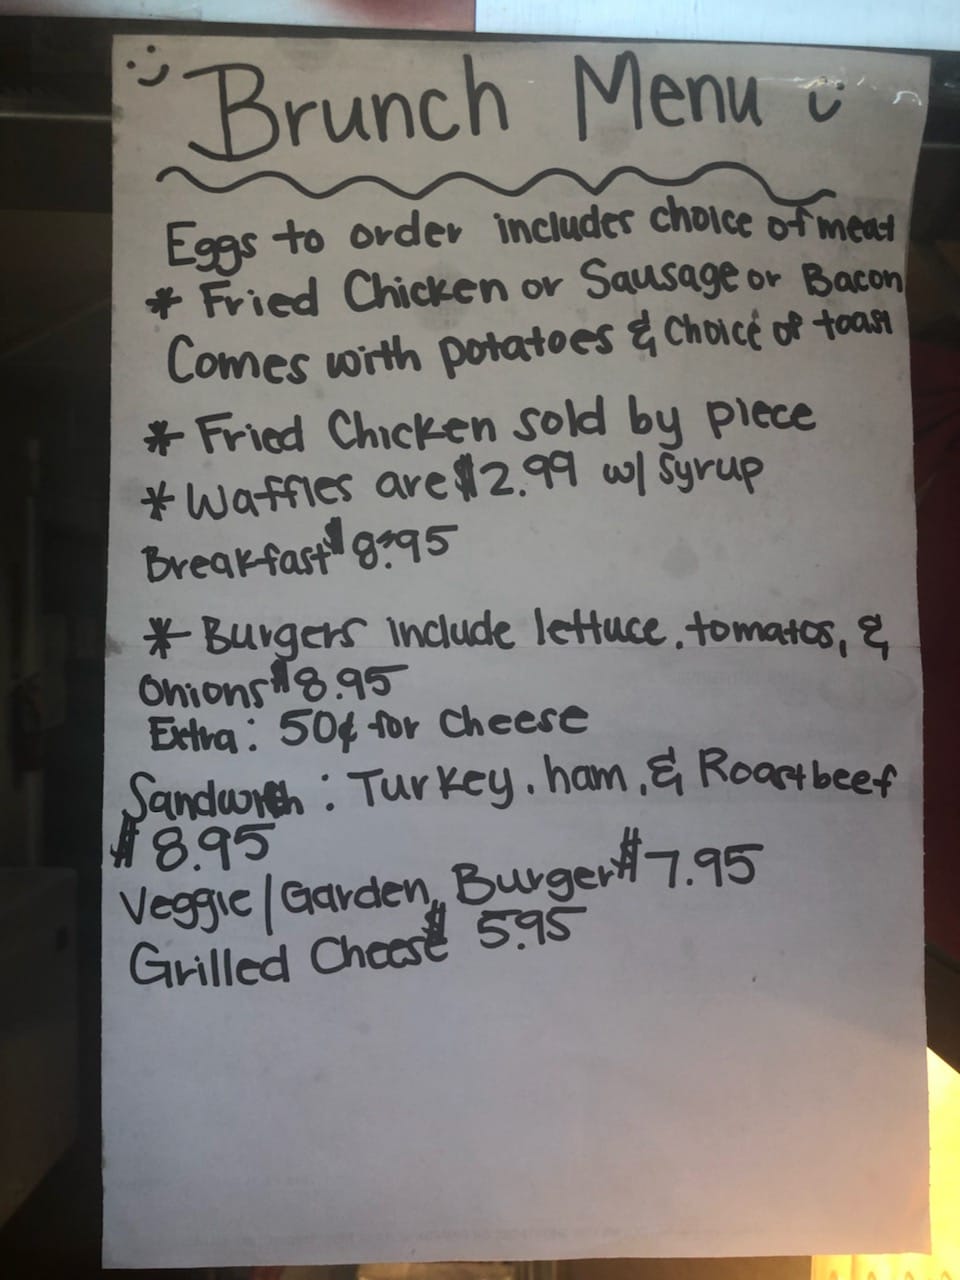 Brunch Menu
Eggs to order includes choice of meat
* Fried Chicken or Sausage or Bacon
Comes with potatoes & choice of toast
* Fried Chicken sold by piece
* Waffles are $2.99 w/ syrup
Breakfast $8.95
* Burgers include lettuce, tomatos, &
Onions $8.95
Extra: 50¢ for cheese
Sandwich: Turkey, ham, & Roastbeef
$8.95
Veggie/Garden Burger $7.95
Grilled Cheese $5.95